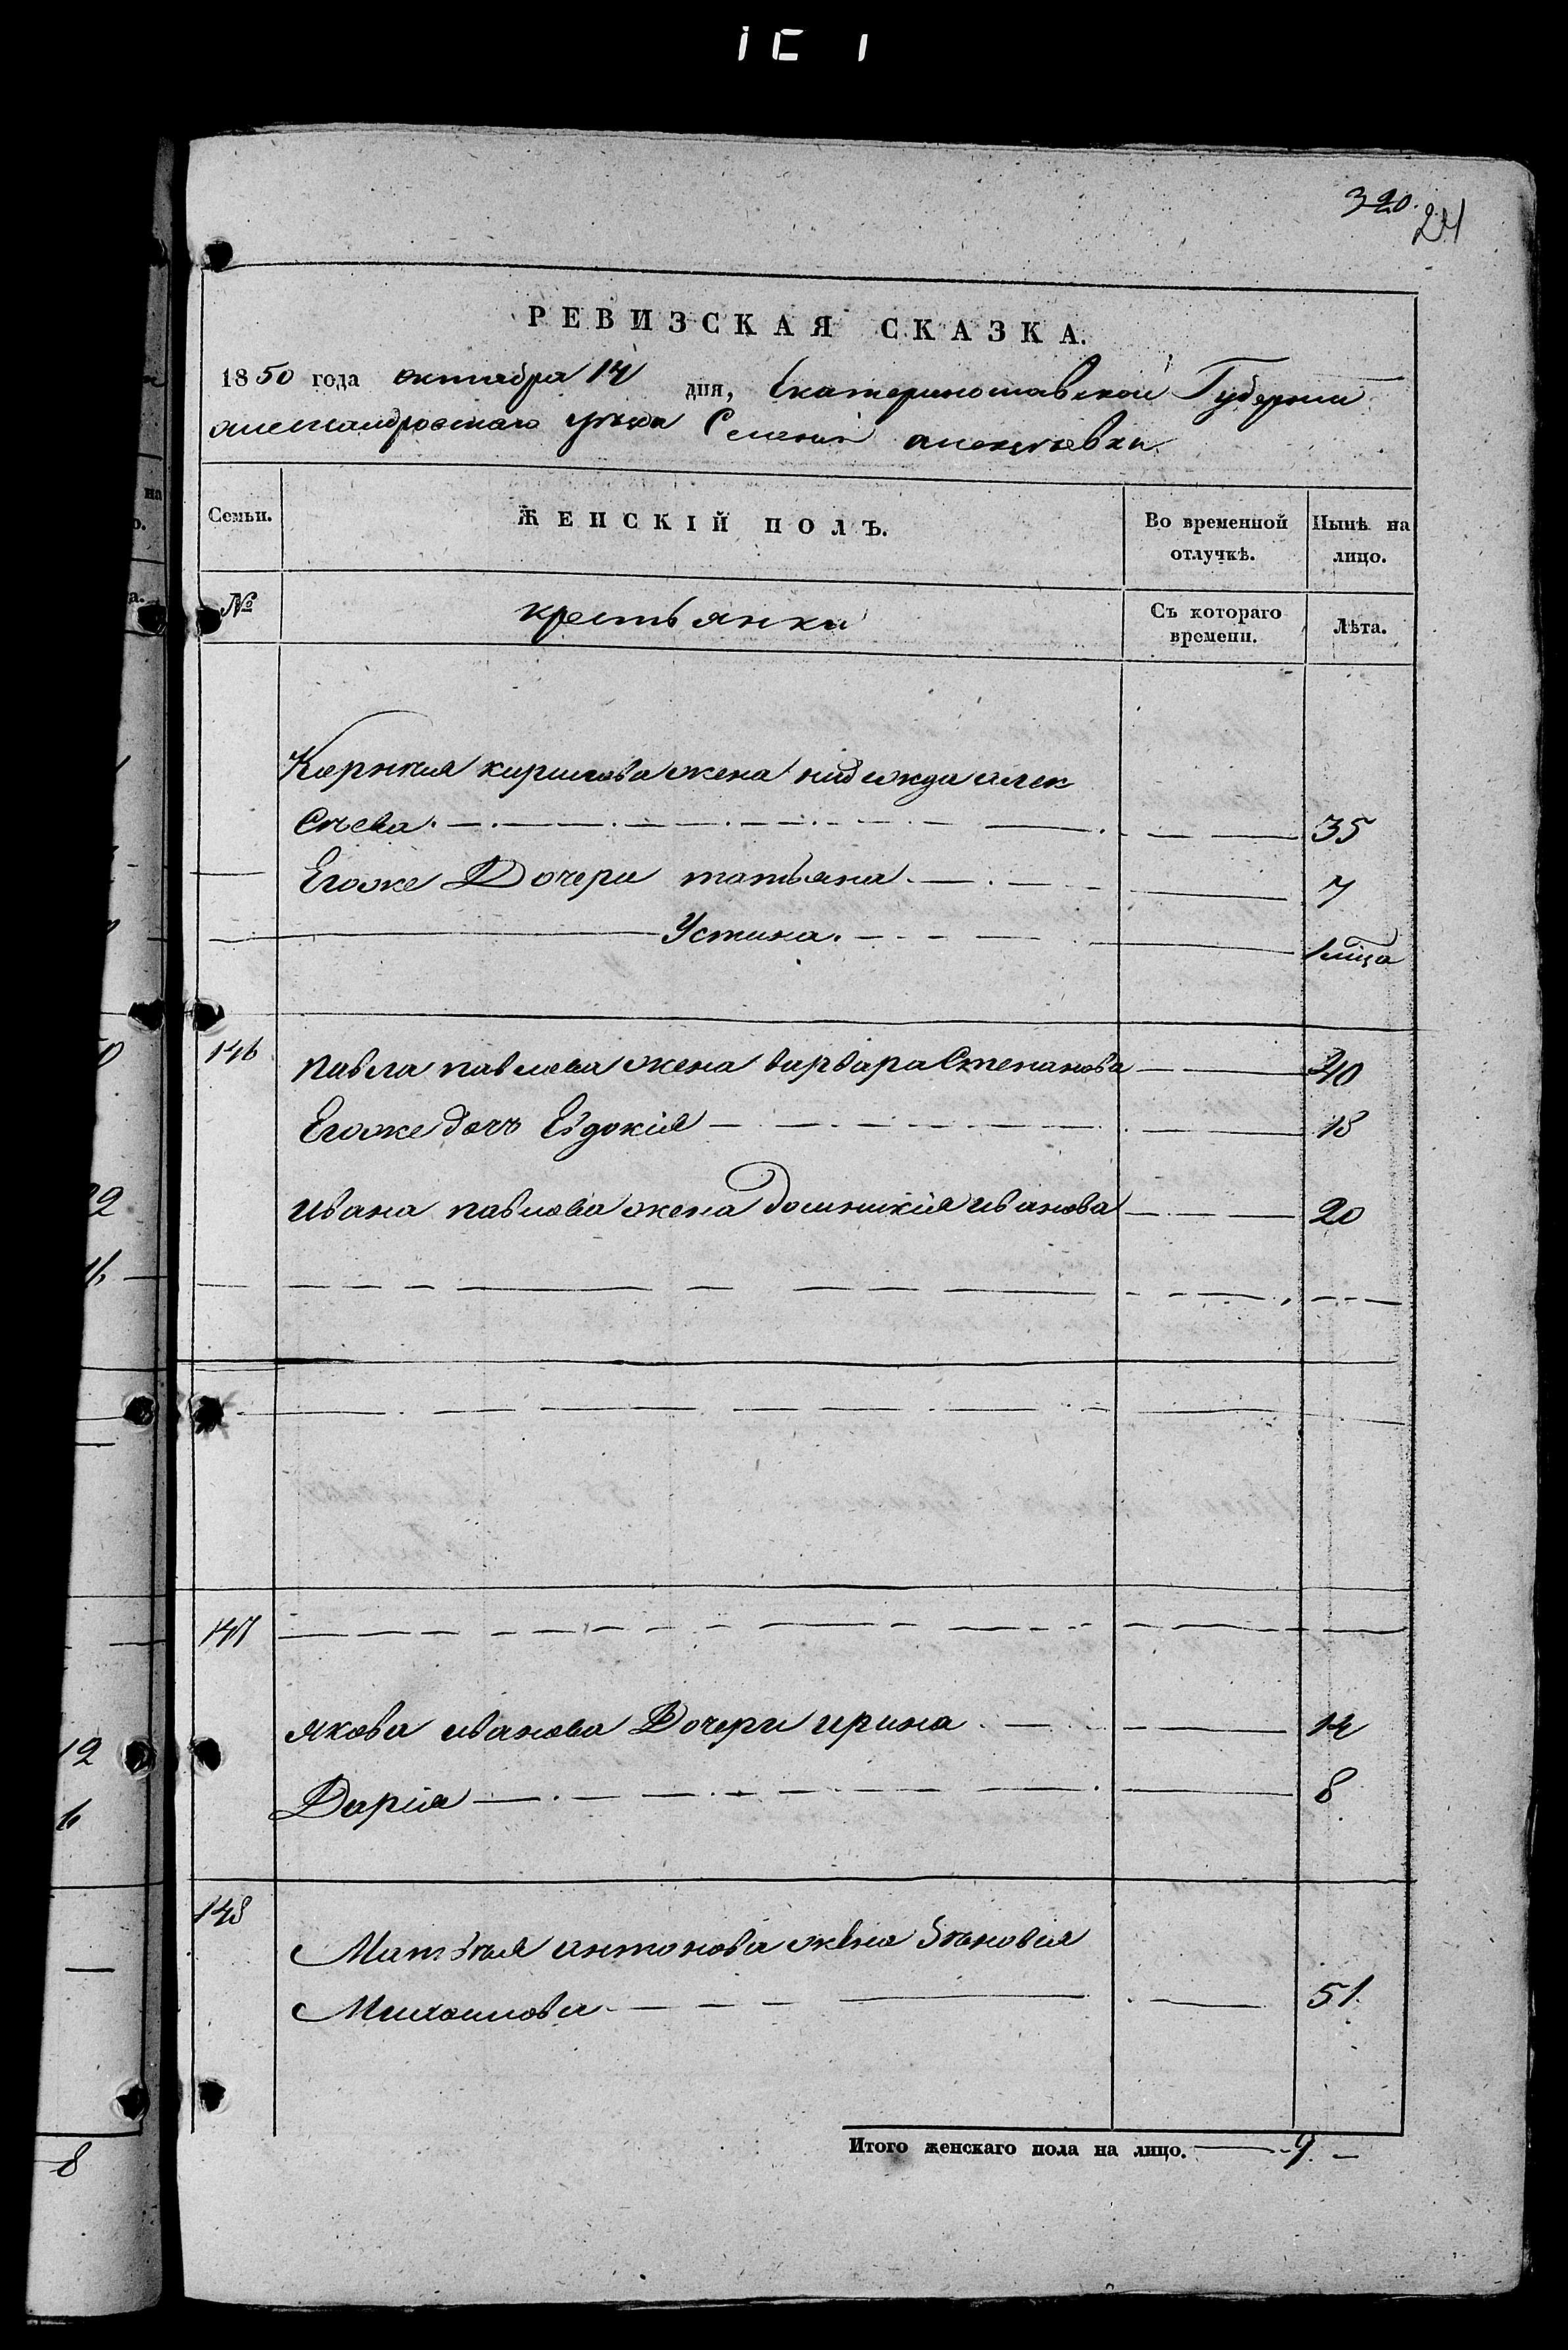 320.
24
РЕВИЗСКАЯ СКАЗКА.
1850 года октября 14 дня, Екатеринославской Губернии
александровскаго уезда Селения алексеевки
Семьи. ЖЕНСКІЙ ПОЛЪ. Во временной отлучкѣ. Нынѣ на лицо.
№ крестьянки Съ котораго времени. Лѣта.
Корнея кирилова жена надежда алек
сѣева. 35
Егоже Дочери татьяна 7
Устина. 1 мѣца
146 павла павлова жена варвара Степанова 40
Егоже дочь Евдокия 18
ивана павлова жена домникия иванова 20
147
якова иванова Дочери ирина 14
Дария 8
148
Матвея антонова жена Зѣновия
Михаилова 51
Итого женскаго пола на лицо. 9.
на
о.
а.
22
16
12
6
8